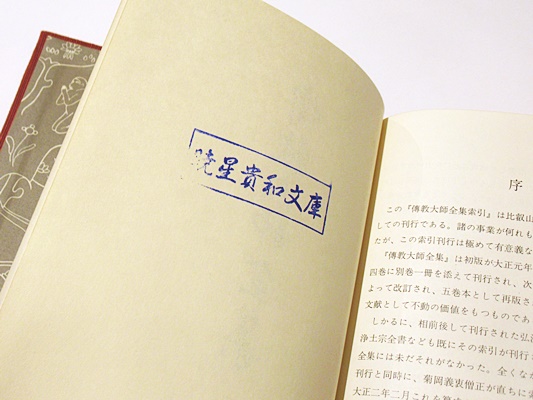 暁星貴和文庫
序
この『傳教大師全集索引』は比叡山
しての刊行である。諸の事業が何れも
たが、この索引刊行は極めて有意義な
『傳教大師全集』は初版が大正元年
四巻に別巻一冊を添えて刊行され、次
よって改訂され、五巻本として再版さ
文献として不動の価値をもつものであ
しかるに、相前後して刊行された弘法
浄土宗全書なども既にその索引が刊行
全集には未だそれがなかった。全くなが
刊行と同時に、菊岡義衷僧正が直ちに索
大正二年二月これを